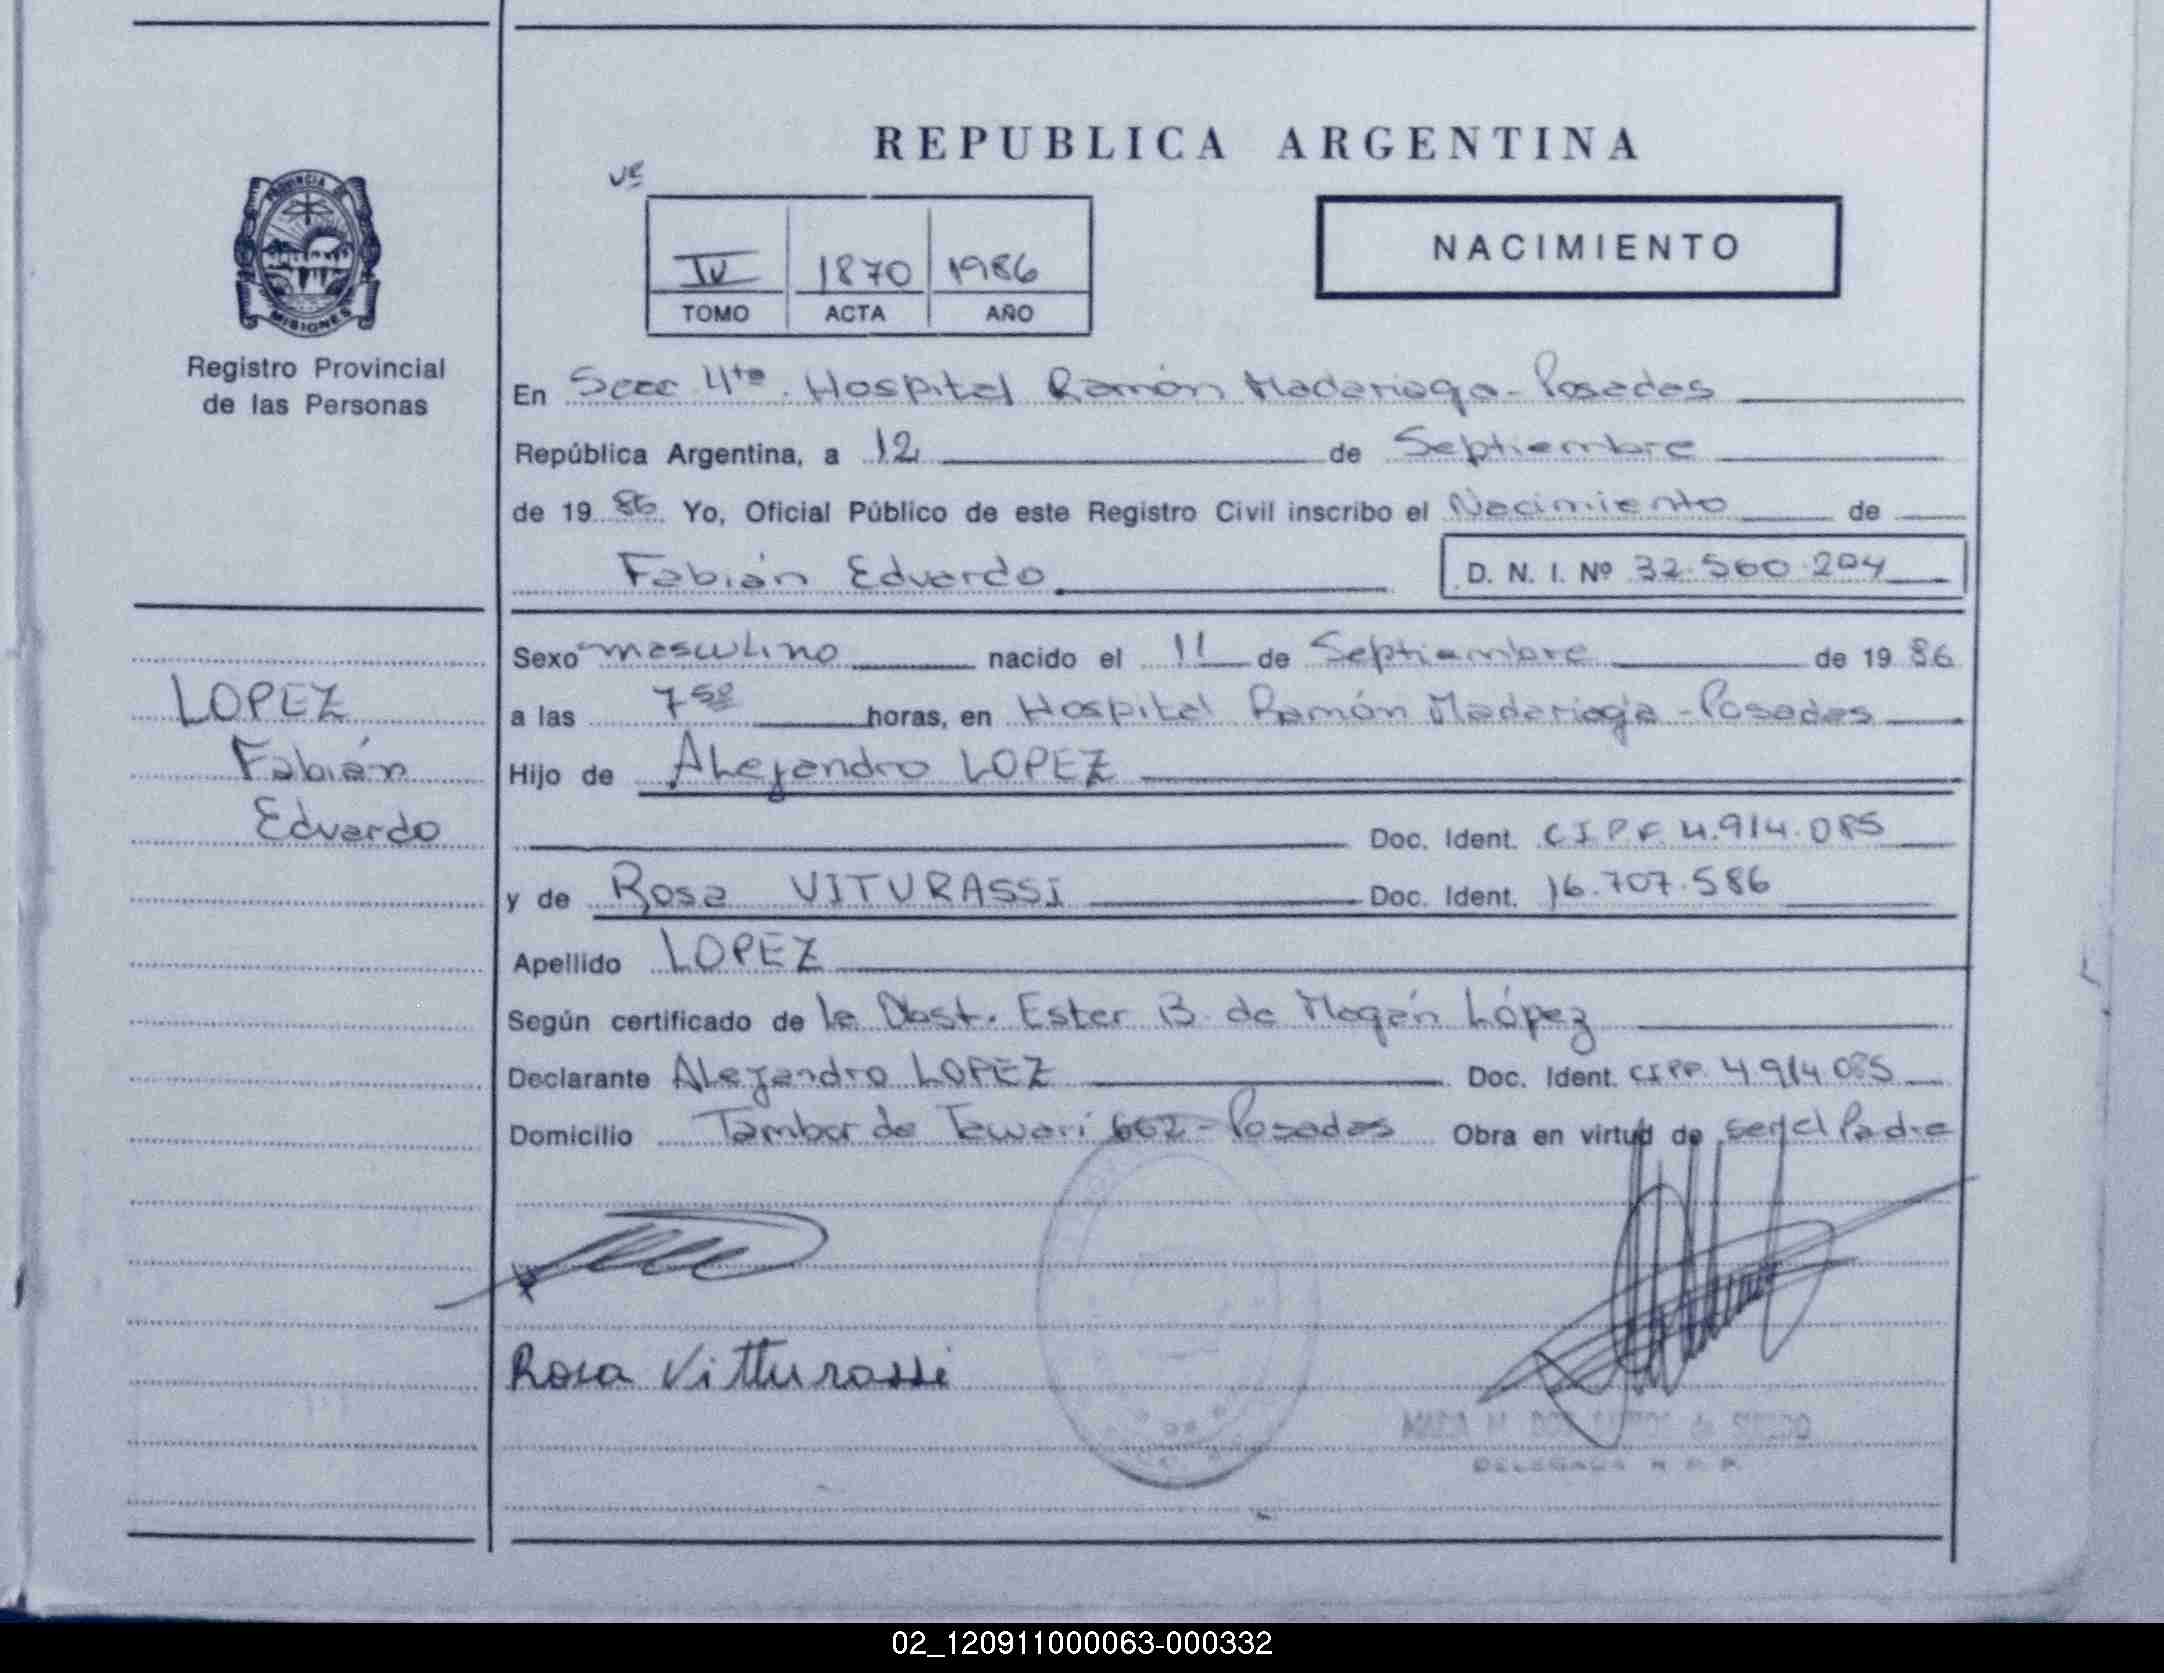 REPUBLICA ARGENTINA
PROVINCIA DE
MISIONES
Registro Provincial
de las Personas
IV 1870 1986
TOMO ACTA AÑO
NACIMIENTO
En Secc 4ta. Hospital Ramón Madariaga - Posadas
República Argentina, a 12 de Septiembre
de 1986 Yo, Oficial Público de este Registro Civil inscribo el Nacimiento de
Fabián Eduardo D. N. I. Nº 32.560.204
Sexo masculino nacido el 11 de Septiembre de 1986
LOPEZ
Fabián
Eduardo
a las 7 50 horas, en Hospital Ramón Madariaga - Posadas
Hijo de Alejandro LOPEZ
Doc. Ident. C I P F. 4.914.085
y de Rosa VITURASSI Doc. Ident. 16.707.586
Apellido LOPEZ
Según certificado de la Obst. Ester B. de Magán López
Declarante Alejandro LOPEZ Doc. Ident. 4.914.085
Domicilio Tambor de Tacuarí 602 - Posadas Obra en virtud de ser el Padre
Rosa Vitturassi
DELEGADA R. P. P.
02_120911000063-000332